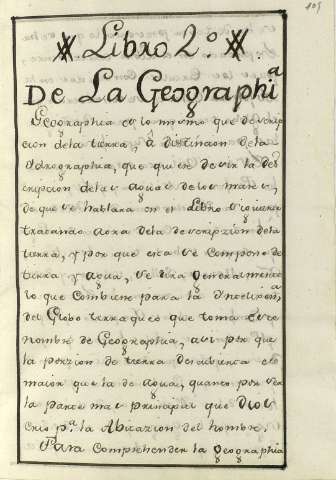 109
Libro 2.º
De La Geographia
Geographia es lo mismo que descrip
cion dela tierra, â distincion dela
Idrographia, que quiere desir la des
cripcion delas aguas de los mares,
de que se hablara en el Libro siguiente
tratando aora dela descripzion dela
tierra, y por que esta se compone de
tierra y agua, se dira generalmente
lo que combiene para la
del Globo terraqueo que toma este
nombre de Geographia, assi por que
la porzion de tierra descubierta es
maior que la de agua, quanto por ser
la parte mas prinsipal que Dios
crio p.ª la Abitazion del hombre.
Para comprehender la geographia